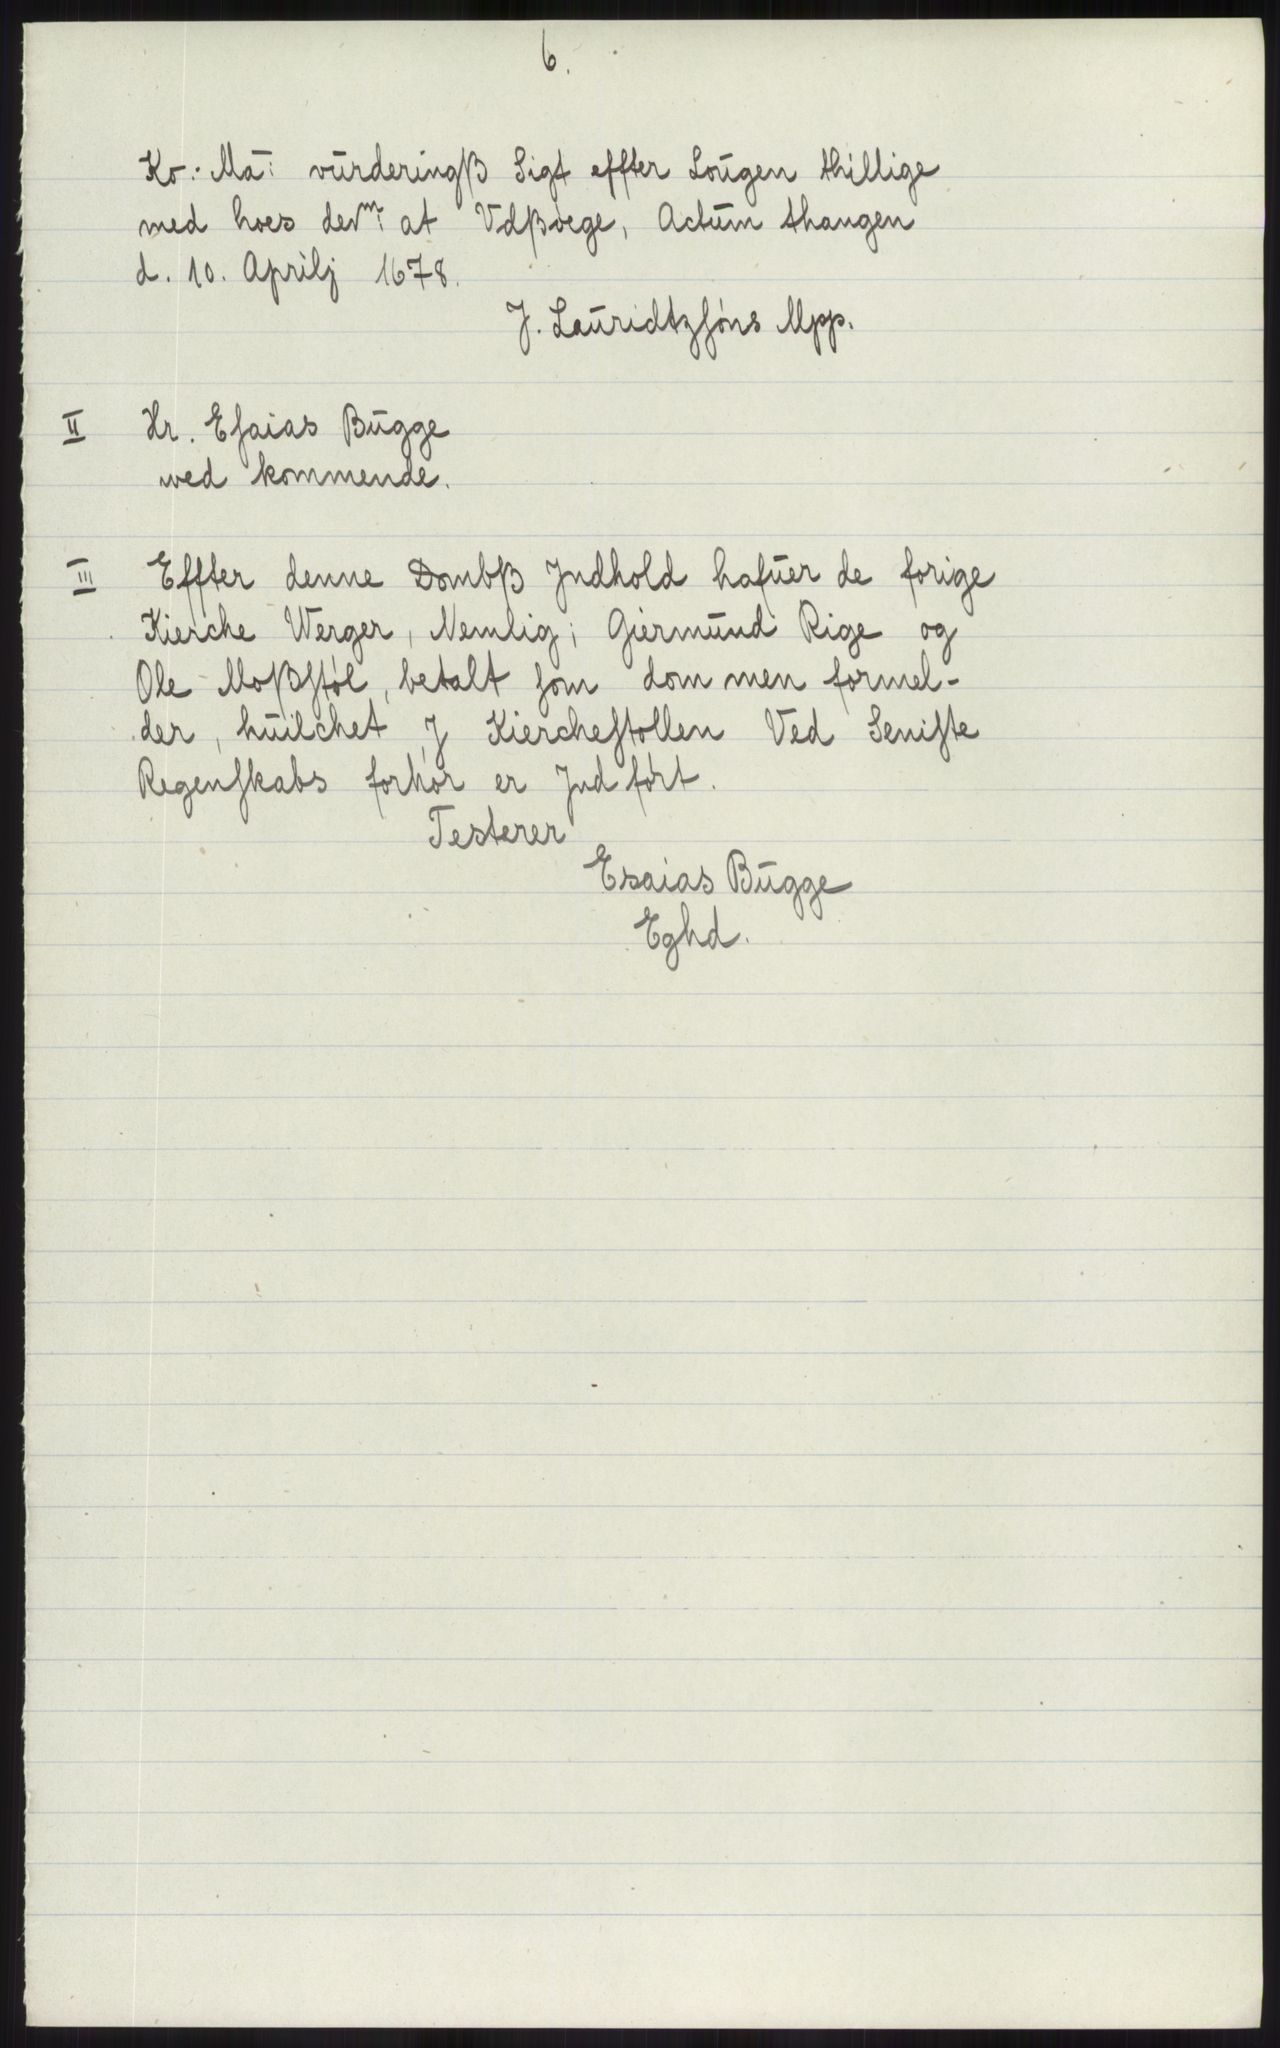 6.
Ko: Ma: vūrderingß Sigt effter Loūgen thillige
med hoes de at Vdßøege, Actūm thangen
d. 10. Aprilj 1678.
J. Laūridtzſøns Mpp.
II Hr. Eſaias Būgge
wed kommende.
III Effter denne Dombß Jndhold hafūer de forige
Kierche Werger, Nemlig; Giermūnd Rige og
Ole Moßſtøl, betalt ſom dommen formel-
der, hūilchet J Kiercheſtollen Ved Seniſte
Regenſkabs forhør er Jndført.
Testerer
Esaias Būgge
Eghd.